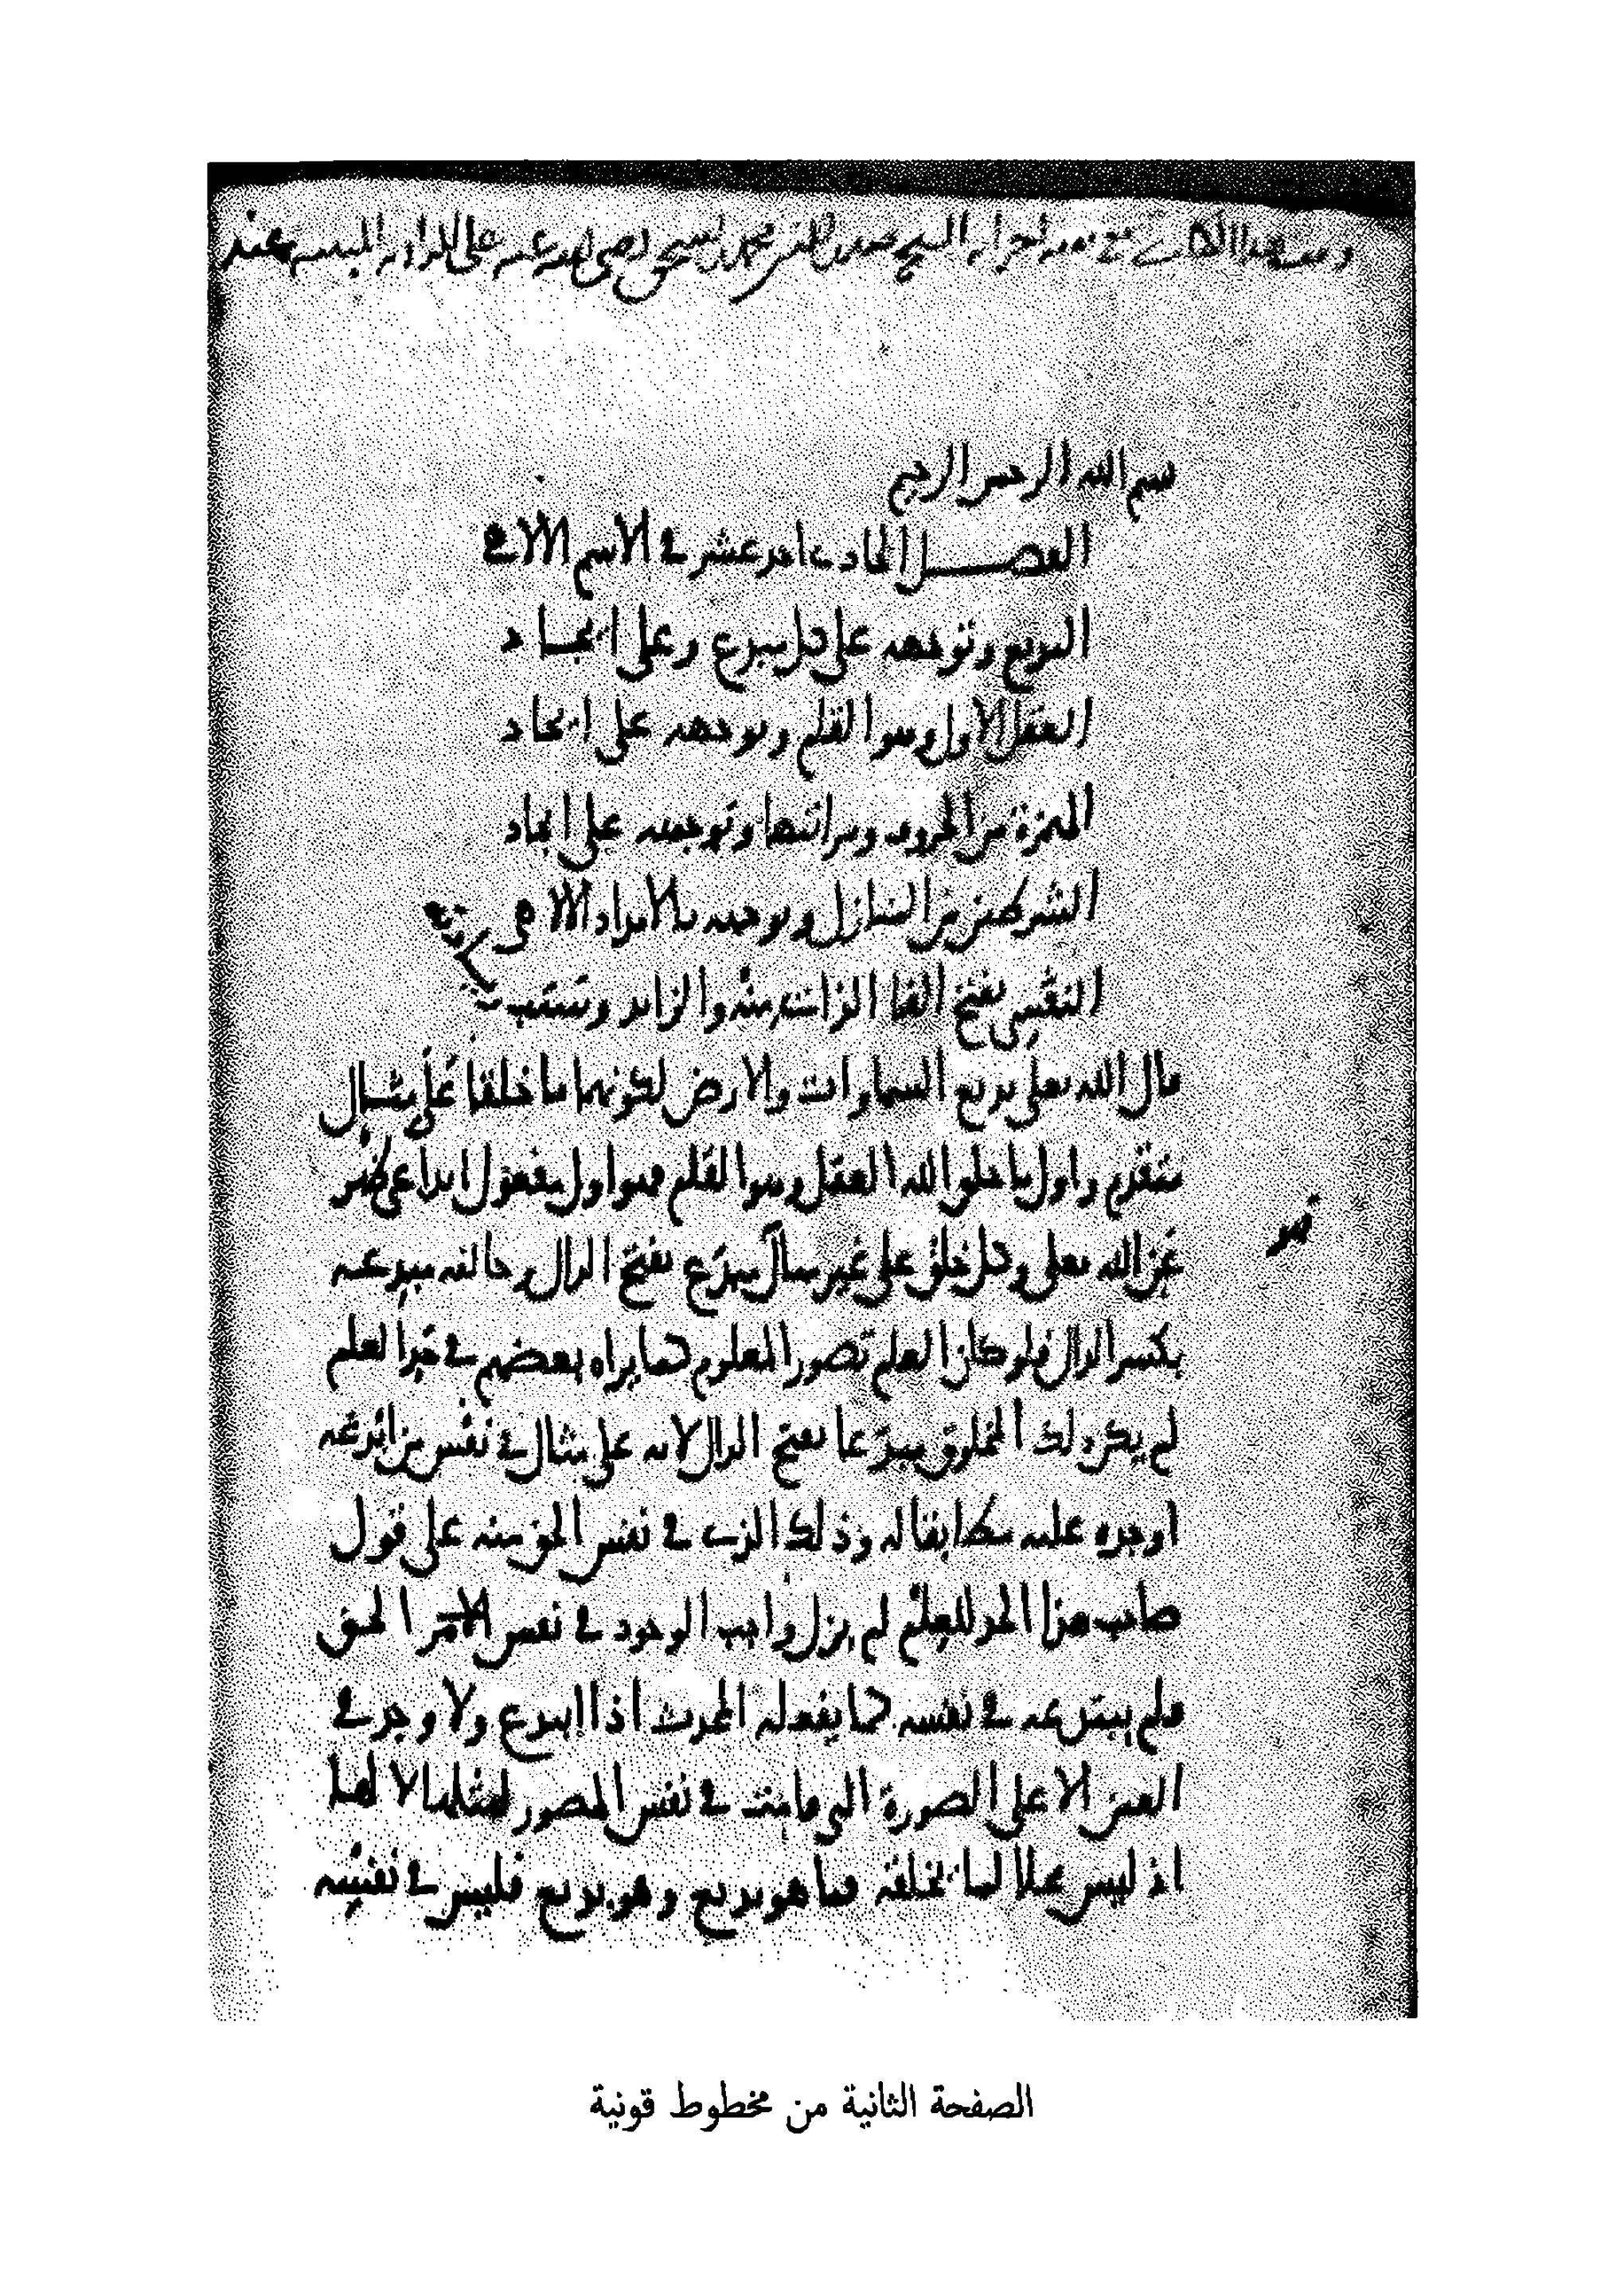 بسم الله الرحمن الرحيم
الفصل الحادي احد عشر في الاسم الالاهي
البديع وتوجهه على كل مبدع وعلى ايجاد
العقل الاول وهو القلم وتوجهه على ايجاد
الهمزة من الحروف ومراتبها وتوجهه على ايجاد
الشرطين من المنازل وتوجهه بالامداد الالاهي
النفسي بفتح الفا الذاتي منه والزايد وسببه
قال الله تعلى بديع السماوات والارض لكونهما ما خلقا على مثال
متقدم واول ما خلق الله العقل وهو القلم فهو اول مفعول ابداعي ظهر
عن الله تعلى وكل خلق على غير مثال مبدع بفتح الدال وخالقه مبدعه
بكسر الدال فلو كان العلم تصور المعلوم كما يراه بعضهم في حد العلم
لم يكن ذلك المخلوق مبدعا بفتح الدال لانه على مثال في نفس من ابدعه
اوجده عليه مطابقا له وذلك الذي في نفس الحق منه على قول
صاحب هذا الحد للعلم لم يزل واجب الوجود في نفس الحق
فلم يبتدعه في نفسه كما يفعله المحدث اذا ابتدع ولا وجد في
العين الا على الصورة التي قامت في نفس المصور لمثلها لا لها
اذ ليس محلا لما يخلقه فما هو بديع وهو بديع فليس في نفسه
الصفحة الثانية من مخطوط قونية